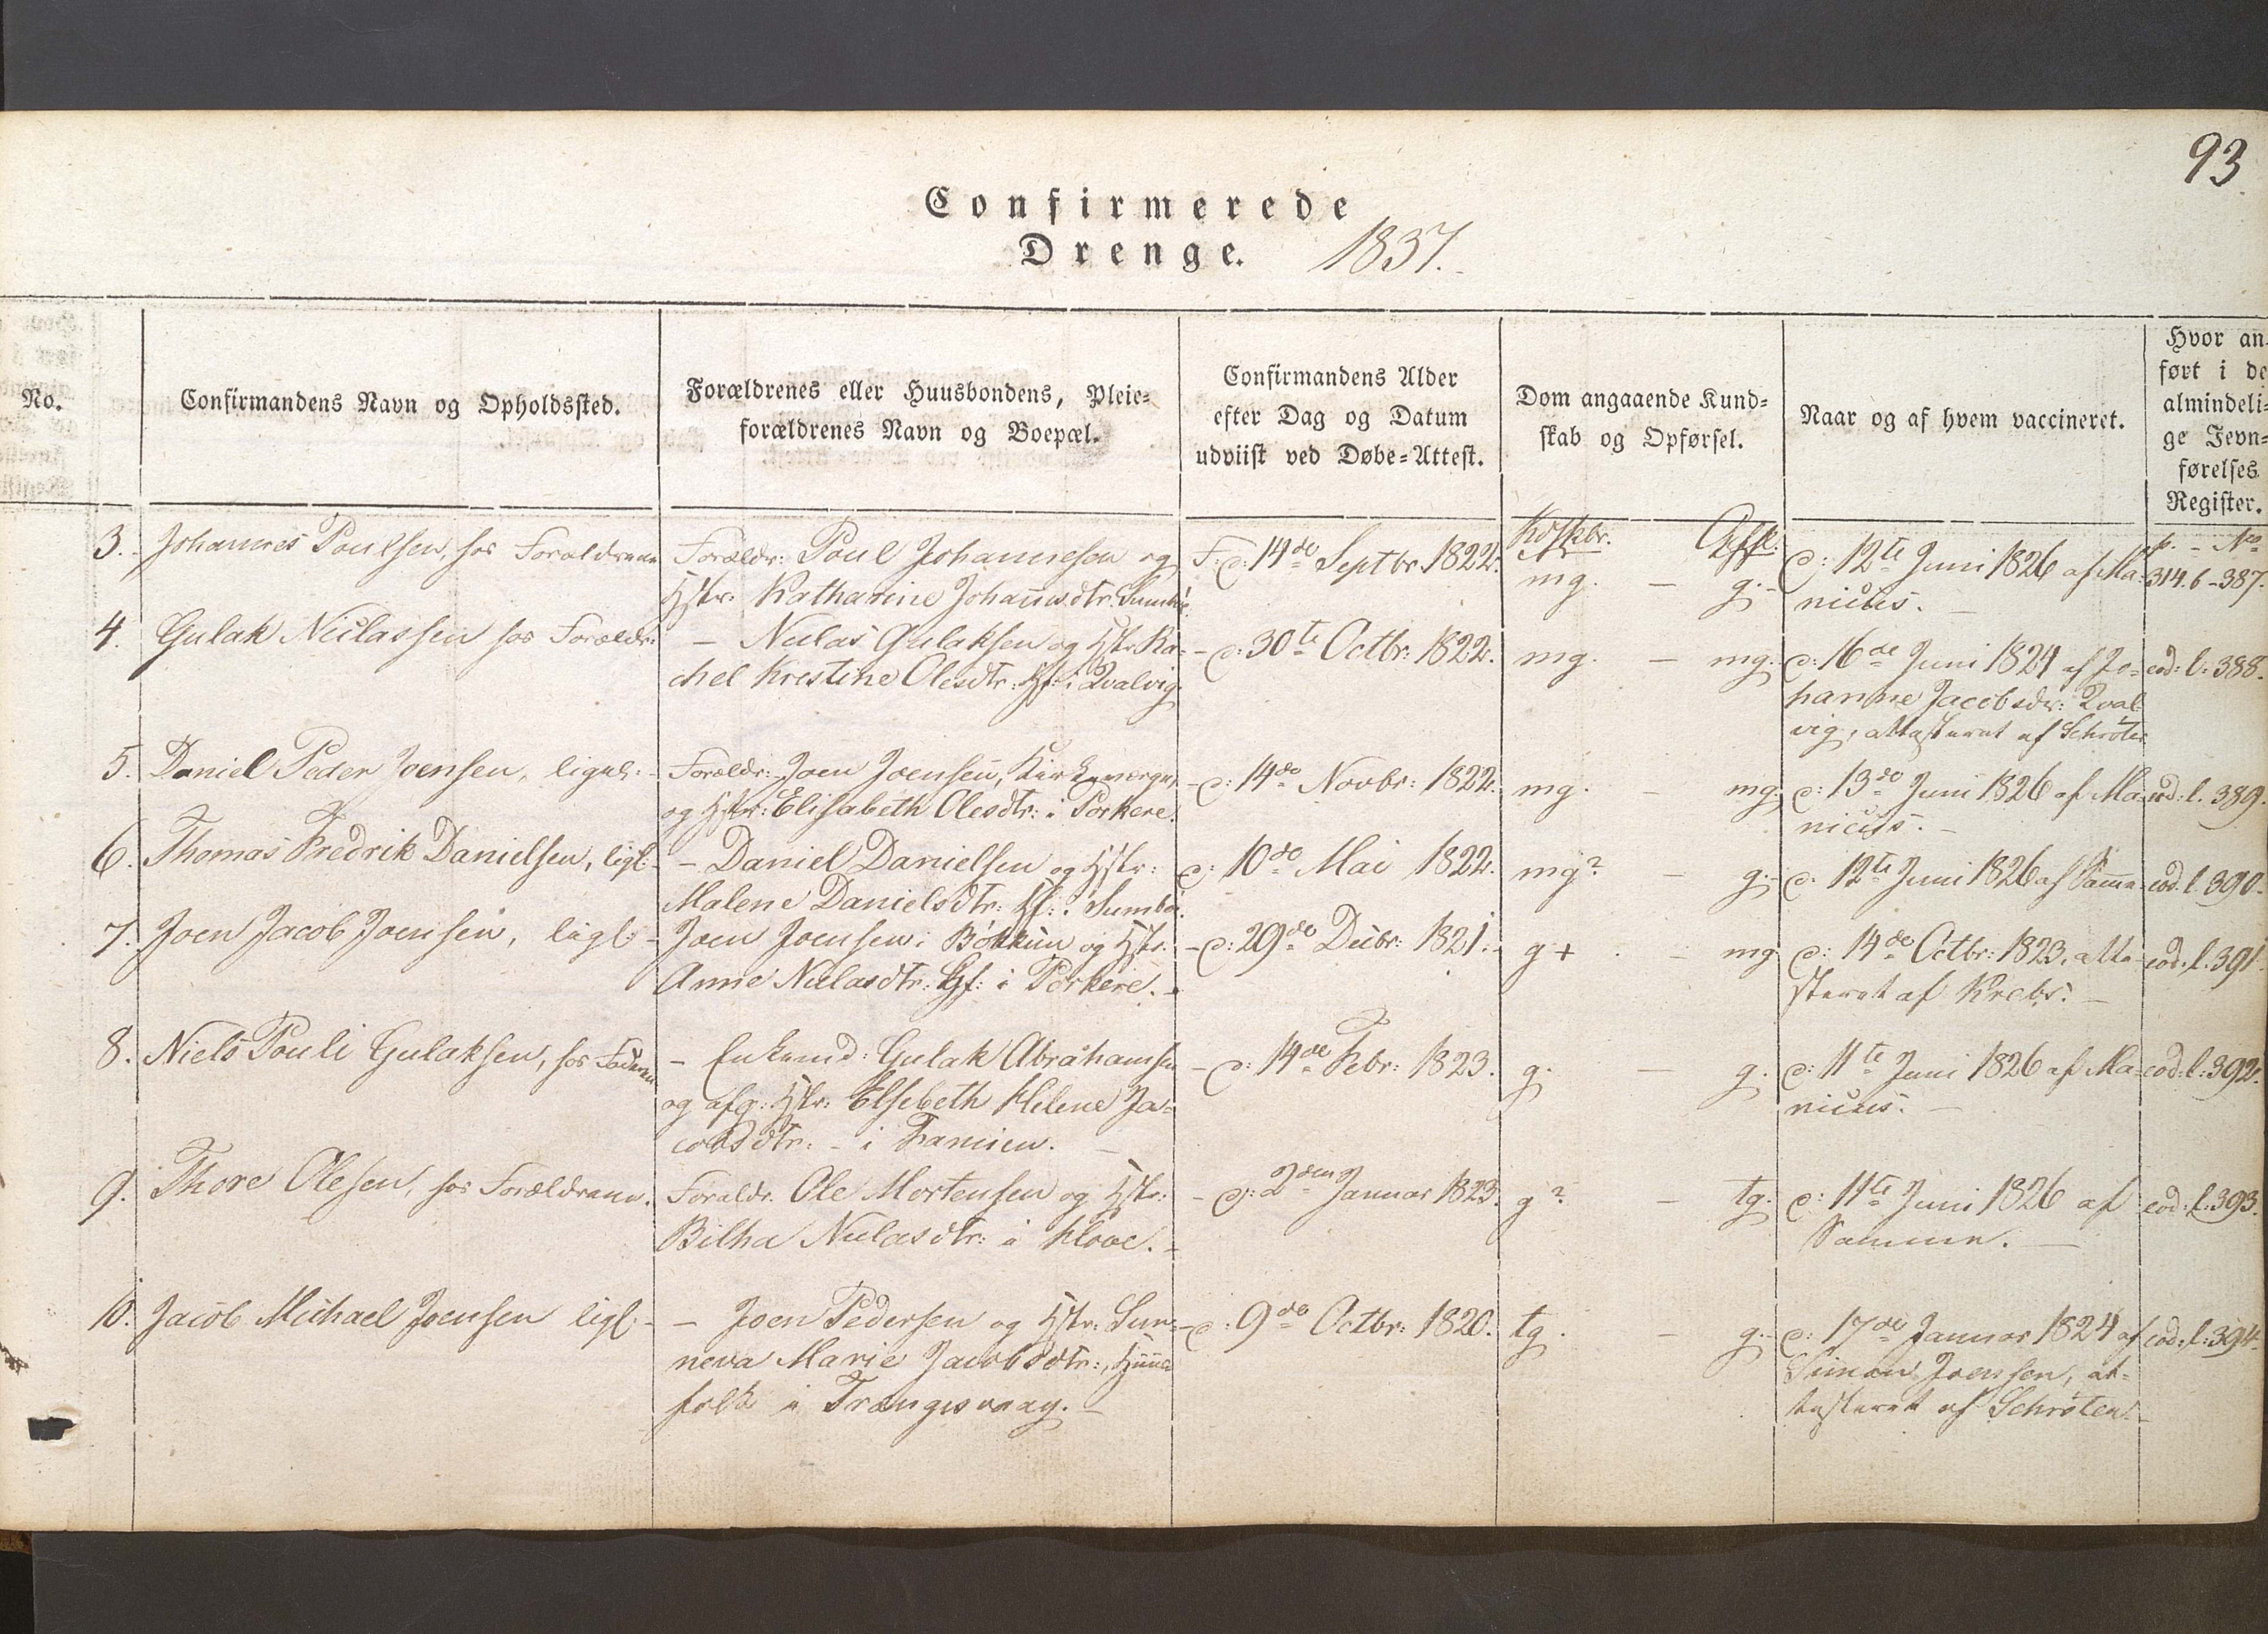 93
Confirmerede
Drenge. 1837.
No.
Confirmandens Navn og Opholdssted.
Forældrenes eller Huusbondens, Pleie=
forældrenes Navn og Boepæl.
Confirmandens Alder
efter Dag og Datum
udviist ved Døbe=Attest.
Dom angaaende Kund=
skab og Opførsel.
Naar og af hvem vaccineret.
Hvor an=
ført i de
almindeli=
ge Jevn=
førelses
Register.
3. Johannes Poulsen, hos Forældrene
Forældr: Poul Johannesen og
Hstr: Katharine Johannsdtr. Sumbö.
F. d: 14de Septbr. 1822.
Kdskbr. Opfl:
mg. – g.
d: 12te Juni 1826 af Ma=
nicus. –
p. – No
314. 6 – 387.
4. Gulak Niclassen hos Forældr:
– Niclas Gulaksen og Hstr. Ra=
chel Kristine Olesdtr: Hf: i Qvalvig
– d: 30te Octbr: 1822.
mg. – mg.
d: 16de Juni 1824 af Jo=
hanne Jacobsdr: Qval
vig, attesteret af Schröter
eod: l. 388.
5. Daniel Peder Joensen, ligel:
Forældr: Joen Joensen, Kirkeværge,
og Hstr: Elisabeth Olesdtr: i Porkere.
– d: 14de Novbr: 1822.
mg. – mg.
d: 13de Juni 1826 af Ma=
nicus. –
eod: l. 389.
6. Thomas Fredrik Danielsen, ligl:
– Daniel Danielsen og Hstr:
Malene Danielsdtr: Hf: i Sumbö.
d: 10de Mai 1822.
mg? – g.
d. 12te Juni 1826 af Samme
eod. l. 390.
7. Joen Jacob Joensen, ligl: –
Joen Joensen i Bökkun og Hstr.
Anne Niclasdtr: Hf: i Porkere.
– d: 29de Decbr: 1821.
g + – mg
d: 14de Octbr: 1823, atte=
steret af Krebs. –
eod. l. 391.
8. Niels Pouli Gulaksen, hos Faderen
– Enkemd: Gulak Abrahamsen
og afg: Hstr: Elsebeth Helene Ja=
cobsdtr: – i Famien. –
– d: 14de Febr: 1823.
g. – g.
d: 11te Juni 1826 af Ma=
nicus. –
eod: l: 392.
9. Thore Olesen, hos Forældrene.
Forældr. Ole Mortensen og Hstr:
Bilha Niclasdtr: i Hove. –
– d: 2den Januar 1823.
g? – tg.
d: 11te Juni 1826 af
Samme. –
eod: l. 393.
10. Jacob Michael Joensen ligl: –
– Joen Pedersen og Hstr: Sun=
neva Marie Jacobsdtr:, Huus
folk i Trangisvaag. –
– d: 9de Octbr: 1820.
tg. – g.
d: 17de Januar 1824 af
Simon Joensen, at=
testeret af Schröter. –
eod: l: 394.